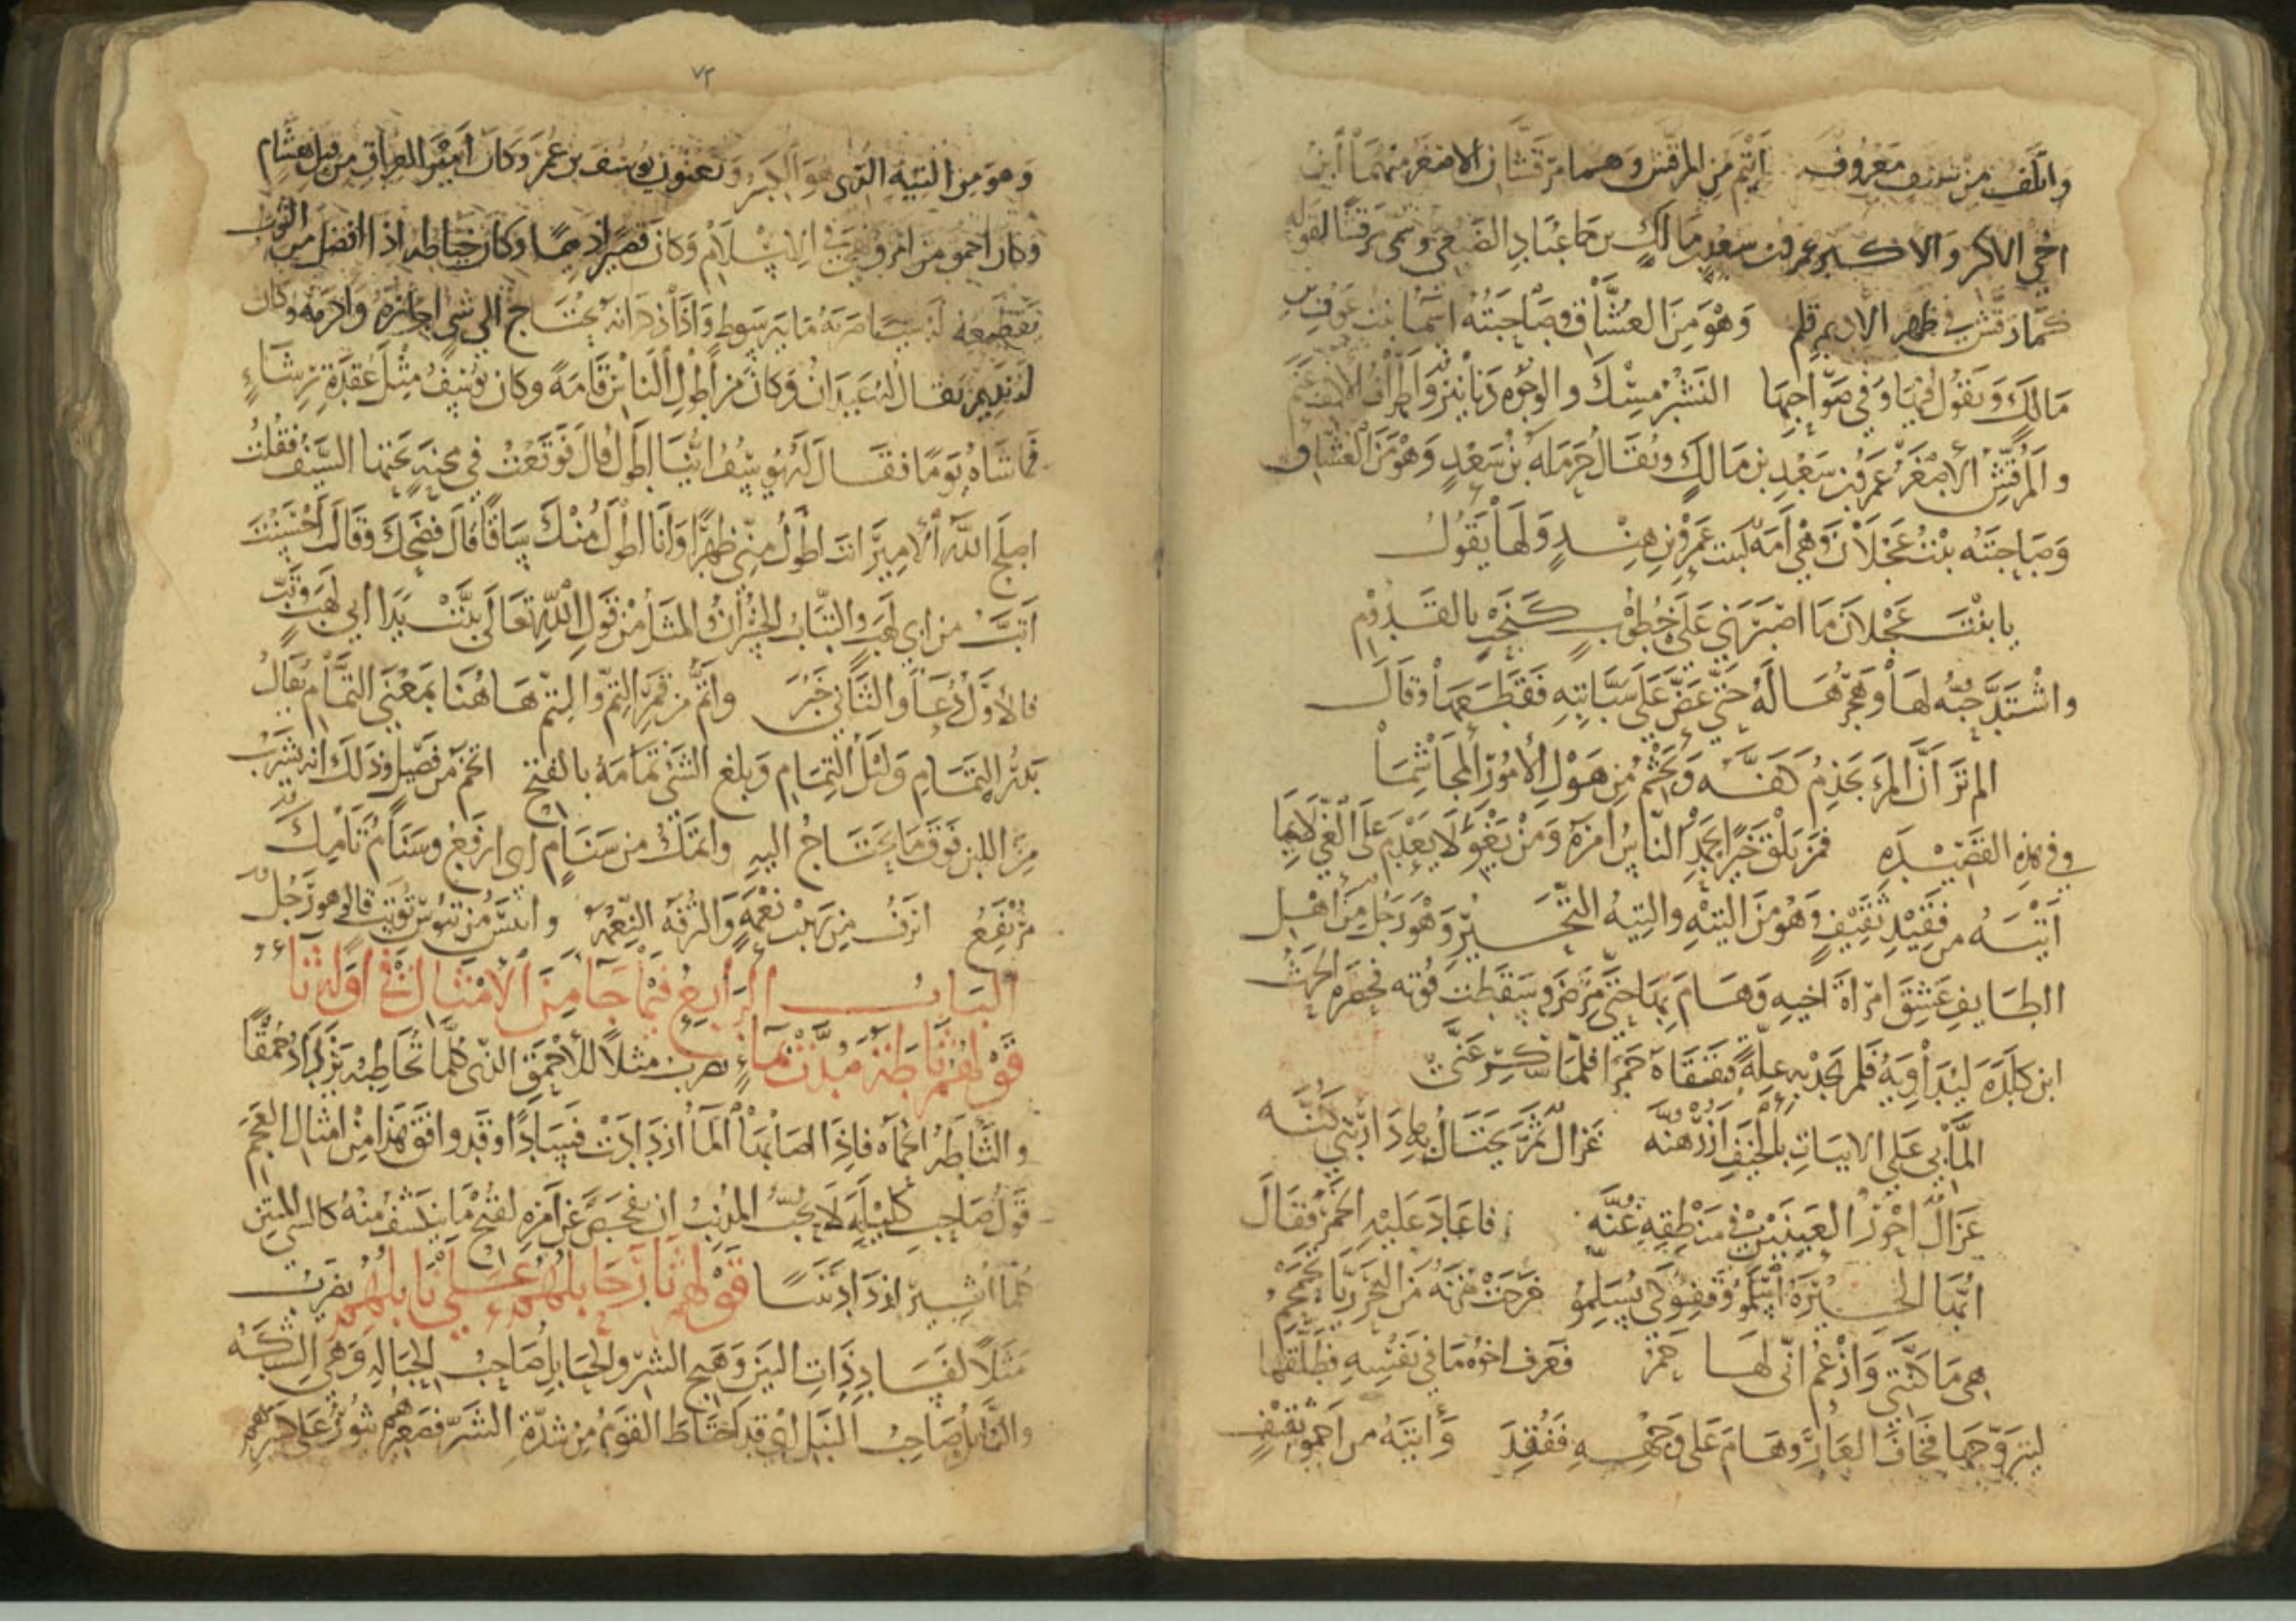 واتلف من سلف معروف أتيم من المرقش وهما مرقشان الاصغر منهما ابن
اخي الاكبر والاكبر عمرو بن سعد بن مالك بن عباد الضبعي وسمي مرقشا لقوله
كما رقش في ظهر الاديم قلم وهو من العشاق وصاحبته اسما بنت عوف بن
مالك ويقول فيها وفي صواحبها النشر مسك والوجوه دنانير واطراف الاكف عنم
والمرقش الاصغر عمرو بن سعد بن مالك ويقال حرملة بن سعد وهو من العشاق
وصاحبته بنت عجلان وهي أمة لبنت عمرو بن هند ولها يقول
يا بنت عجلان ما اصبرني على خطوب كنحت بالقدوم
واشتد حبه لها وهجرها له حتى عض على سبابته فقطعها وقال
الم تر أن المرء يجذم كفه ويجشم من هول الأمور المجاشما
وفي هذه القصيدة فمن يلق خيرا يحمد الناس امره ومن يغو لا يعدم على الغي لائما
أتيه من فقيد ثقيف وهو من التيه والتيه التحير وهو رجل من أهل
الطايف عشق امرأة اخيه وهام بها حتى مرض وسقطت قوته فحضره الحرث
ابن كلدة ليداويه فلم يجد به علة فسقاه خمرا فلما سكر غنى
ألما بي على الابيات بالخيف ازرهنه غزال ثم يحتل بها دار بني كنه
غزال احور العينين في منطقه غنه فاعاد عليه الخمر فقال
ايها الجيرة اسلموا وقفوا كي تسلموا خرجت مزنة من البحر ريا تحمحم
هي ما كنتي وازعم اني لها حم فعرف اخوه ما في نفسه فطلقها
ليتزوجها فخاف العار وهام على وجهه ففقد وأتيه من احمق ثقيف
٧٣
وهو من التيه الذي هو الكبر ويعنون يوسف بن عمر وكان أمير العراق من قبل هشام
وكان احمق من امر ونهى في الاسلام وكان قصيرا دميما وكان خياطه اذا افضل من الثوب
يقطعه له سيا ضربه مايه سوط واذا ذكر انه يحتاج الى شي اجازه واكرمه وكان
له نديم يقال له عبدان وكان من أطول الناس قامة وكان يوسف مثل عقدة رشاء
فماشاه يوما فقال له يوسف اينا اطول قال فوقعت في محنة تحتها السيف فقلت
اصلح الله الامير انت اطول مني ظهرا وانا اطول منك ساقا قال فضحك وقال احسنت
أتب من ابي لهب والتباب الخسران والمثل من قول الله تعالى تبت يدا ابي لهب وتب
فالاول دعا والثاني خبر واتم من قمر التم والتم هاهنا بمعنى التمام يقال
بدر التمام وليل التمام وبلغ الشي تمامه بالفتح اتخم من فصيل وذلك انه يشرب
من اللبن فوق ما يحتاج اليه واتمك من سنام اي ارفع وسنام تامك
مرتفع اترف من ربيب نعمة والترفه النعمة واتيس من تيوس تويت قالو هو رجل
الباب الرابع فيما جا من الامثال في اوله ثاء
قولهم ثأطة مدت بماء يضرب مثلا للاحمق الذي كلما تخاطبه يزداد حمقا
والثاطه الحمأه فاذا اصابها الما ازدادت فسادا وقد وافق هذا من امثال العجم
قول صاحب كليله لا يحب المذنب ان يفحص عن امره لقبح ما ينكشف منه كالشي المنتن
كلما اثير ازداد نتنا قولهم ثار حابلهم على نابلهم يضرب
مثلا لفساد ذات البين وهيج الشر والحابل صاحب الحباله وهي الشبكه
والنابل صاحب النبل اي قد اختلط القوم من شدة الشر فصغيرهم يثور على كبيرهم